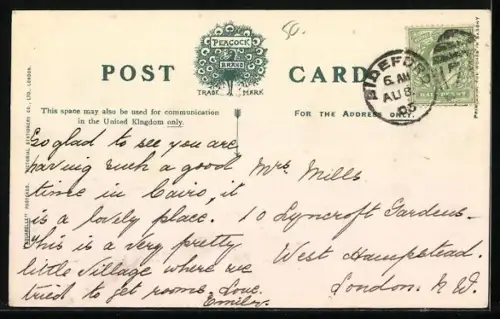 PEACOCK
BRAND
TRADE MARK
POST CARD
This space may also be used for communication
in the United Kingdom only.
FOR THE ADDRESS ONLY.
BIDEFORD
6 AM
AU 8
05
HALFPENNY
So glad to see you are
having such a good
time in Cairo, it
is a lovely place.
This is a very pretty
little Village where we
tried to get rooms. Love.
Emily.
Mrs. Mills
10 Lyncroft Gardens
West Hampstead.
London. N.W.